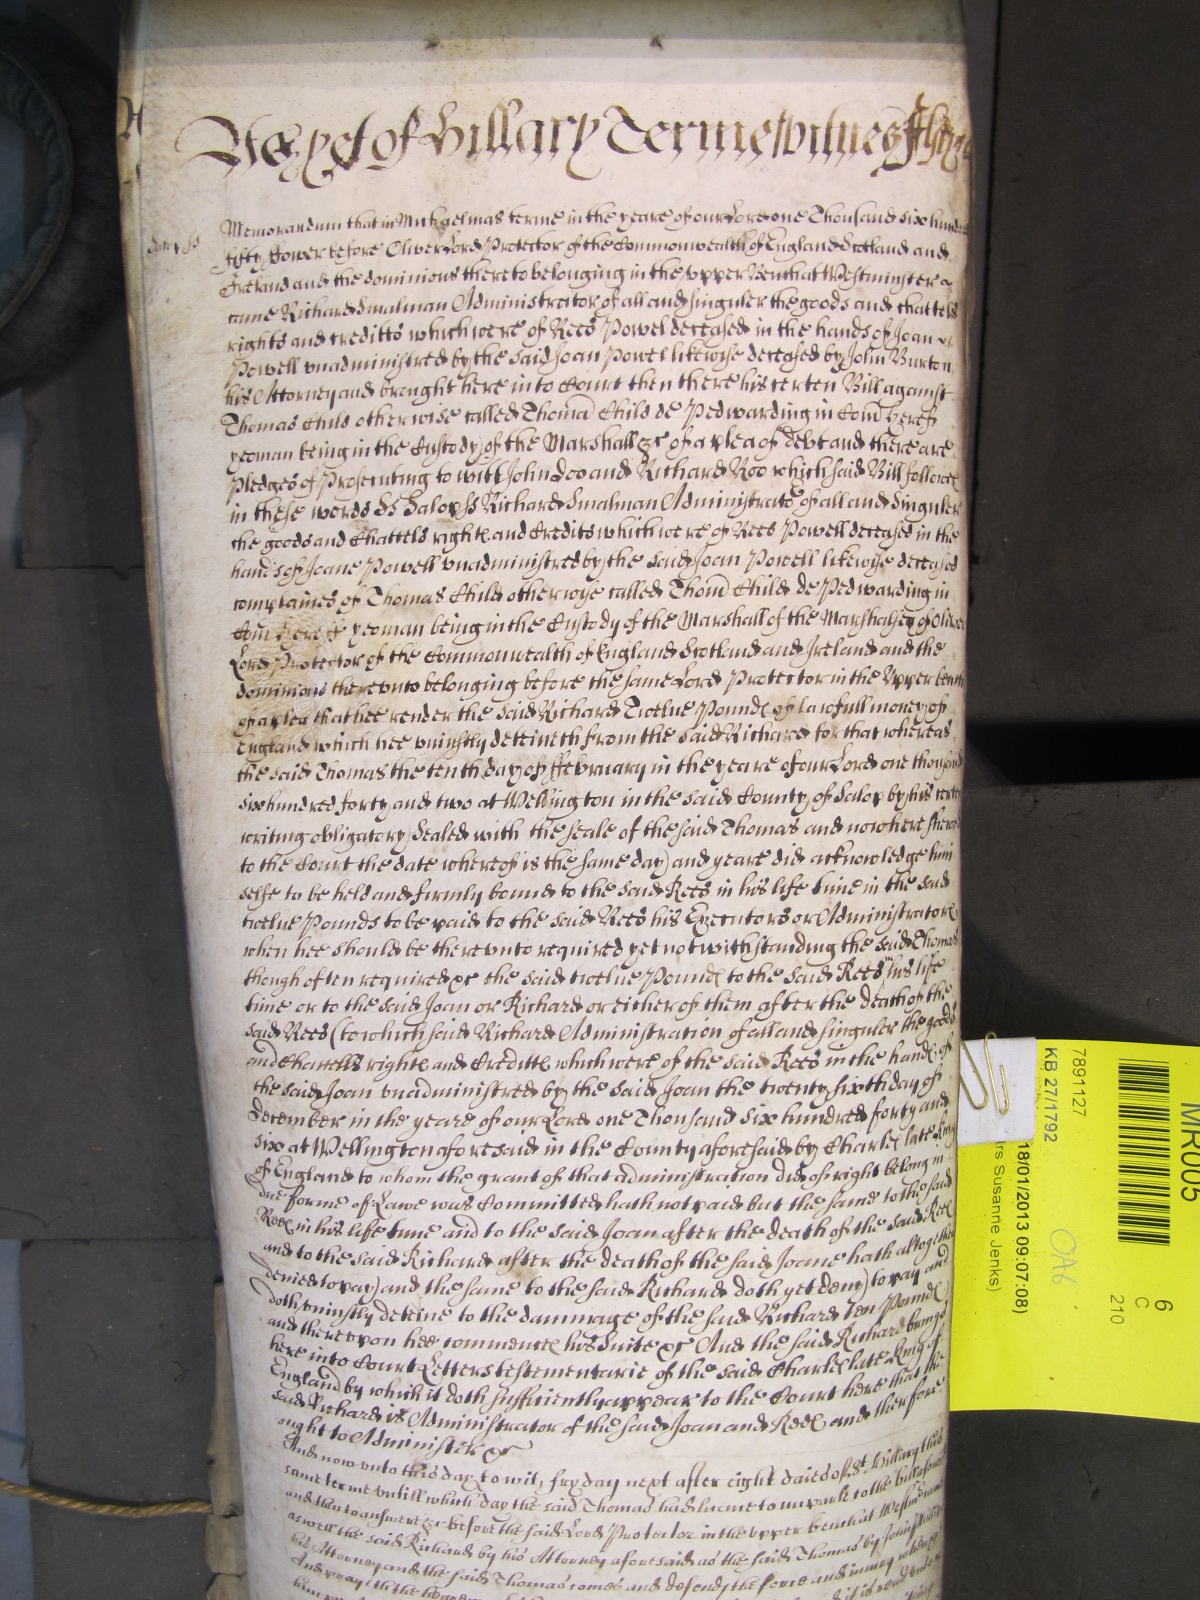 As yet of Hillary Terme witnes
Salop ss
Memorandum that in Michaelmas terme in the yeare of our Lord one Thousand six hundred
fifty ffower before Oliver Lord Protector of the Commonwealth of England Scotland and
Ireland and the dominions thereto belonging in the upper Bench at Westminster
came Richard Smalman Administrator of all and singuler the goods and chattels
rights and creditts which were of Rees Powel deceased in the hands of Joan
Powell unadministred by the said Joan Powel likewise deceased by John Burton
his Attorney and brought here into Court then there his certen Bill against
Thomas Child otherwise called Thoma Child de Pedwarding in Com heref
yeoman being in the Custody of the Marshall &c of a plea of debt and there are
pledges of Prosecuting to witt John Doo and Richard Roo which said Bill followes
in these words ss Salop ss Richard Smalman Administrator of all and Singuler
the goods and Chattels rights and Credits which were of Rees Powell deceased in the
hands of Joane Powell unadministred by the said Joan Powell likewise deceased
complaines of Thomas Child otherwise called Thom Child de Pedwarding in
Com heref yeoman being in the Custody of the Marshall of the Marshalsey of Oliver
Lord Protector of the Commonwealth of England Scotland and Ireland and the
dominions thereunto belonging before the same Lord Protector in the Upper bench
of a plea that hee render the said Richard Twelue Pounds of lawfull money of
England which hee uniustly deteineth from the said Richard for that whereas
the said Thomas the tenth day of ffebruary in the yeare of our Lord one thousand
six hundred forty and two at Wellington in the said County of Salop by his certen
writing obligatory Sealed with the seale of the said Thomas and now here shewed
to the Court the date whereof is the same day and yeare did acknowledge him
selfe to be held and firmly bound to the said Rees in his life time in the said
twelue Pounds to be paid to the said Rees his Executors or Administrators
when hee should be thereunto required yet notwithstanding the said Thomas
though often required &c the said twelue Pounds to the said Rees in his life
time or to the said Joan or Richard or either of them after the death of the
said Rees (to which said Richard Administration of all and singuler the goods
and Chattells rights and Creditts which were of the said Rees in the hands of
the said Joan unadministred by the said Joan the twenty sixth day of
December in the yeare of our Lord one Thousand six hundred forty and
six at Wellington aforesaid in the County aforesaid by Charles late King
of England to whom the grant of that administration did of right belong in
due forme of Lawe was Committed hath not paid but the same to the said
Rees in his life time and to the said Joan after the death of the said Rees
and to the said Richard after the death of the said Joane hath altogether
denied to pay) and the same to the said Richard doth yet deny to pay and
doth uniustly deteine to the dammage of the said Richard ten Pounds
and thereupon hee commences his Suite &c And the said Richard brings
here into Court Letters testementarie of the said Charles late King of
England by which it doth sufficiently appeare to the Court here that the
said Richard is Administrator of the said Joan and Rees and therfore
ought to Administer &c
And now unto this day to wit, fryday next after eight daies of St Hillary this
same terme untill which day the said Thomas had licence to imparle to the bill aforesaid
and then to answere &c before the said Lord Protector in the upper bench at Westminster
aswell the said Richard by his Attorney aforesaid as the said Thomas by John Phillips
his Attorney and the said Thomas comes and defends the force and iniury when &c
And prayes the hearing
MR005
6
C
210
7891127
KB 27/1792
18/01/2013 09:07:08)
rs Susanne Jenks)
OA6